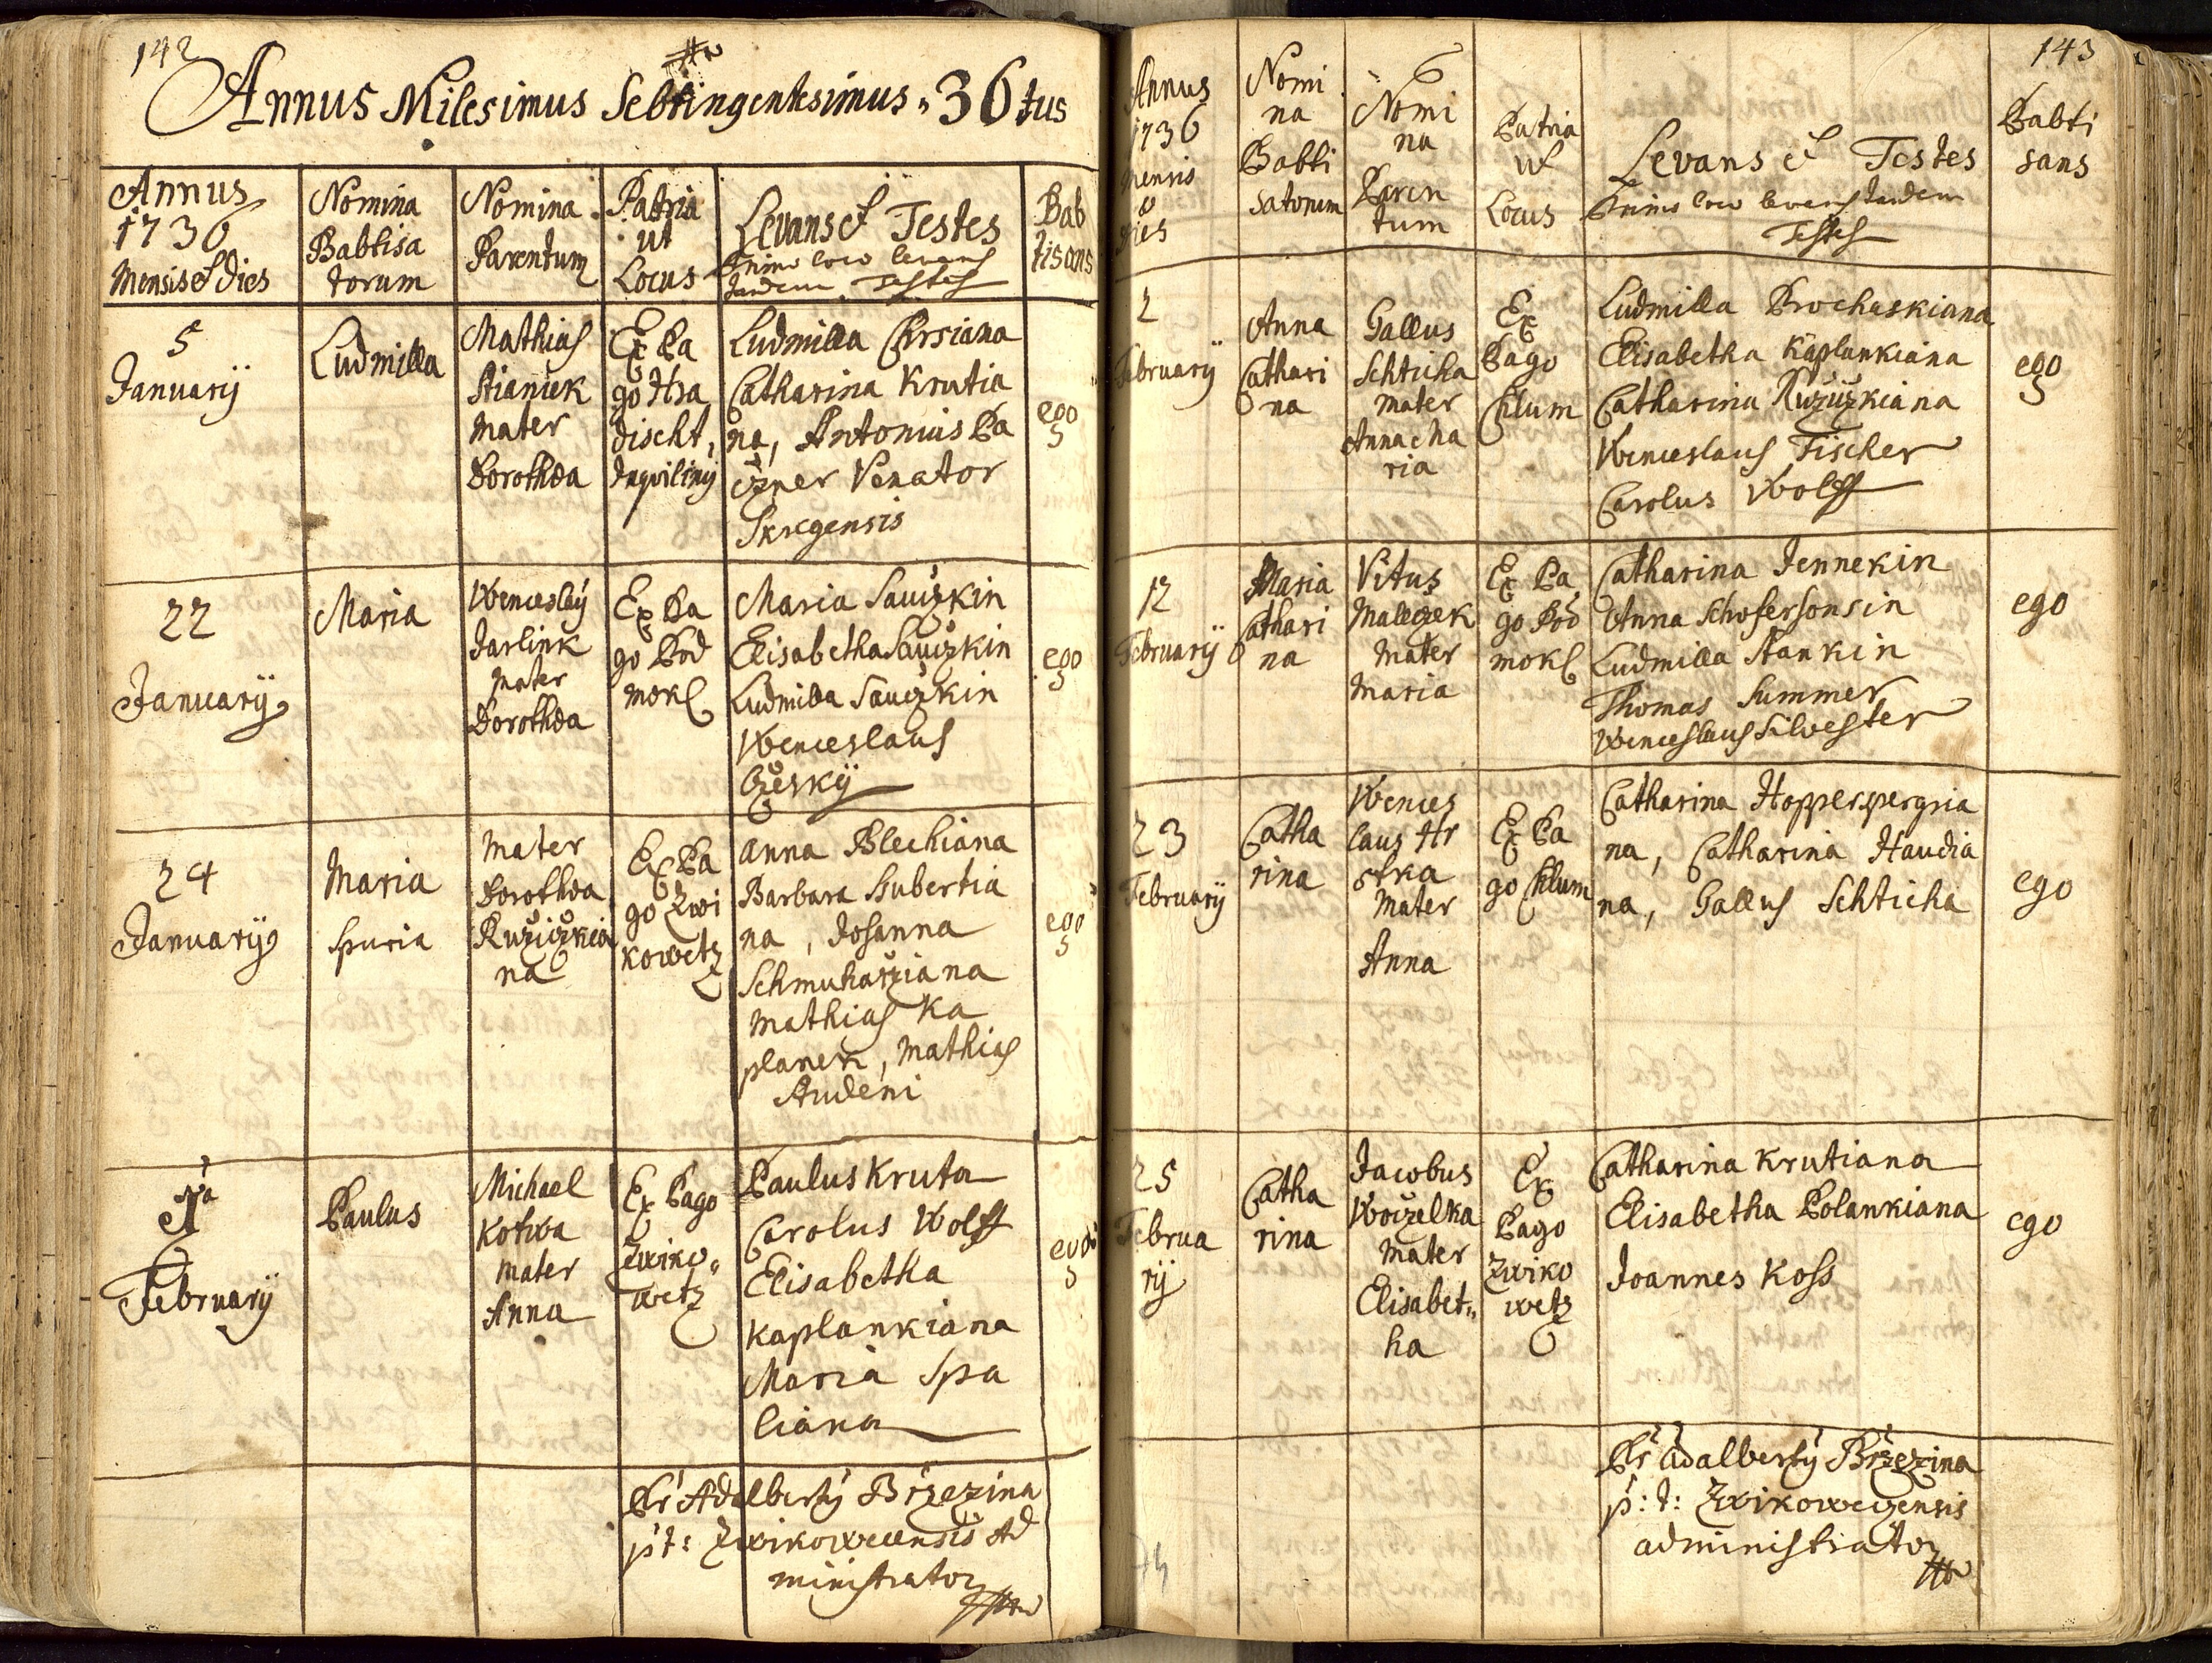 142
Annus Milesimus Sebtingentesimus 36tus
Annus
1736
Mensis et Dies
Nomina
Babtisa
torum
Nomina
Parentum
Patria
ut
Locus
Levans et Testes
Primo loco levans
tandem Testes
Bab
tisans
5
Januarij
Ludmilla
Mathias
Stianiek
Mater
Dorothea
Ex Pa
go Hra
discht,
Inquiliny
Ludmilla Chrsiana
Catharina Krutia
na, Antonius Pa
Venator
Skregensis
ego
22
Januarij
Maria
Wenceslaý
Jarlink
Mater
Dorothea
Ex Pa
go Pod
mokl
Maria Sauczkin
Elisabetha Sauczkin
Ludmilla Sauczkin
Wenceslaus
Czeský
ego
24
Januarij
Maria
Spuria
Mater
Dorothea
Ružiczkia
na
Ex Pa
go Zwi
kowetz
Anna Blechiana
Barbara Hubertia
na, Josanna
Schmucharziana
Mathias Ka
planek, Mathias
Audeni
ego
1ma
February
Paulus
Michael
Kotwa
Mater
Anna
Ex Pago
Zwiko„
wetz
Paulus Kruta
Carolus Wolff
Elisabetha
Kaplankiana
Maria Spa
liana
ego
Pr Adalberty Brzezina
p: t: Zwikowecensis Ad
ministrator
143
Annus
1736
Mensis
et
Dies
Nomi
na
Babti
satorum
Nomi
na
Paren
tum
Patria
ut
Locus
Levans et Testes
Primo loco levans tandem
Testes
Babti
sans
2
February
Anna
Cathari
na
Gallus
Schticha
Mater
Anna Cha
ria
Ex
Pago
Chlum
Ludmilla Prochaskiana
Elisabetha Kaplankiana
Catharina Ružuzkiana
Wenceslaus Fischer
Carolus Wolff
ego
12
February
Maria
Cathari
na
Vitus
Maleczek
Mater
Maria
Ex Pa
go Pod
mokl
Catharina Jennekin
Anna Schofersonsin
Ludmilla Stankin
Thomas Summer
Wenceslaus Silvester
ego
23
February
Catha
rina
Wences
laus Hr
stka
Mater
Anna
Ex Pa
go Chlum
Catharina Hopperpergria
na, Catharina Haudia
na, Gallus Schticha
ego
25
Februa
rij
Catha
rina
Jacobus
Wowzelka
Mater
Elisabet„
ha
Ex
Pago
Zwiko
wetz
Catharina Krutiana
Elisabetha Polankiana
Joannes Koss
ego
Pr Adalberty Brzezina
p: t: Zwikoweczensis
administrator